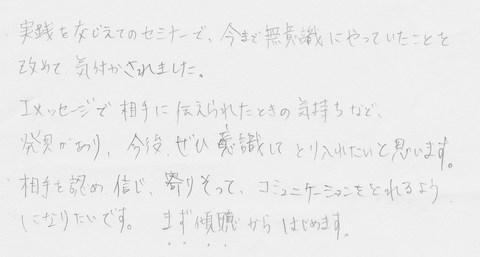 実践を交じえてのセミナーで、今まで無意識にやっていたことを
改めて気付かされました。
Iメッセージで相手に伝えられたときの気持ちなど、
発見があり、今後、ぜひ意識してとり入れたいと思います。
相手を認め信じ、寄りそって、コミュニケーションをとれるよう
になりたいです。 まず傾聴からはじめます。